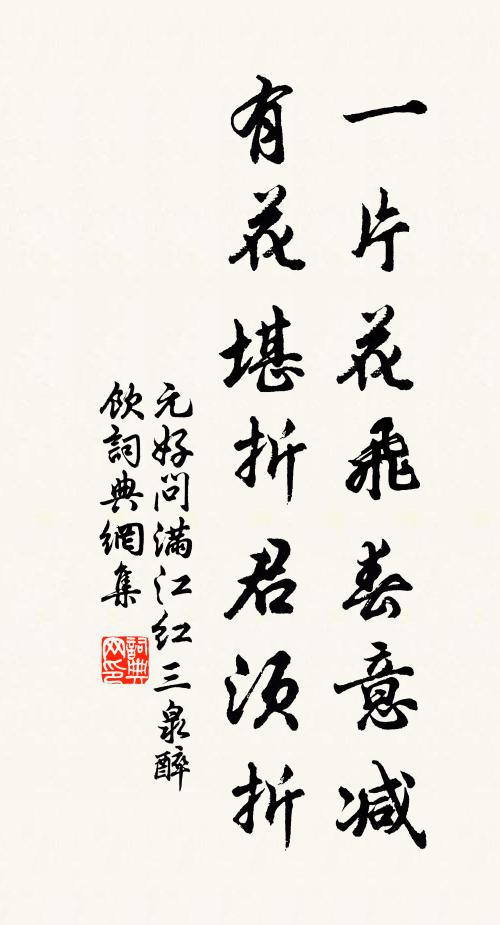 一片花飛春意減
有花堪折君須折
元好問滿江紅三泉醉
飲詞典網集
詞典网印